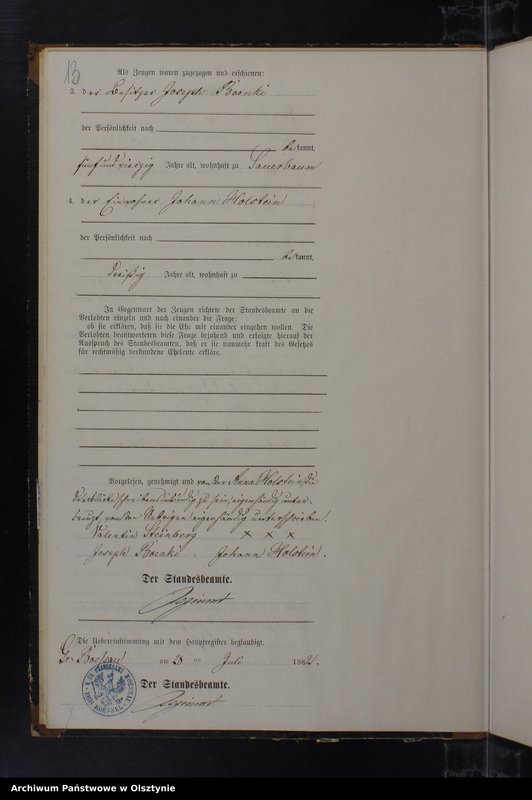 13
Als Zeugen waren zugezogen und erschienen:
3. der Besitzer Joseph Boenki
der Persönlichkeit nach
bekannt,
fünf und vierzig Jahre alt, wohnhaft zu Sauerbaum
4. der Einwohner Johann Holstein
der Persönlichkeit nach
bekannt,
dreißig Jahre alt, wohnhaft zu
In Gegenwart der Zeugen richtete der Standesbeamte an die
Verlobten einzeln und nach einander die Frage:
ob sie erklären, daß sie die Ehe mit einander eingehen wollen. Die
Verlobten beantworteten diese Frage bejahend und erfolgte hierauf der
Ausspruch des Standesbeamten, daß er sie nunmehr kraft des Gesetzes
für rechtmäßig verbundene Eheleute erkläre.
Vorgelesen, genehmigt und von der Anna Holstein die
schreibensunkundig zu sein eigenhändig unter-
kreuzt, von den Uebrigen eigenhändig unterschrieben.
Valentin Steinberg x x x
Joseph Boenki Johann Holstein.
Der Standesbeamte.
Die Uebereinstimmung mit dem Hauptregister beglaubigt.
Gr. Bössau am 28 ten Juli 1882.
Der Standesbeamte.
Archiwum Państwowe w Olsztynie